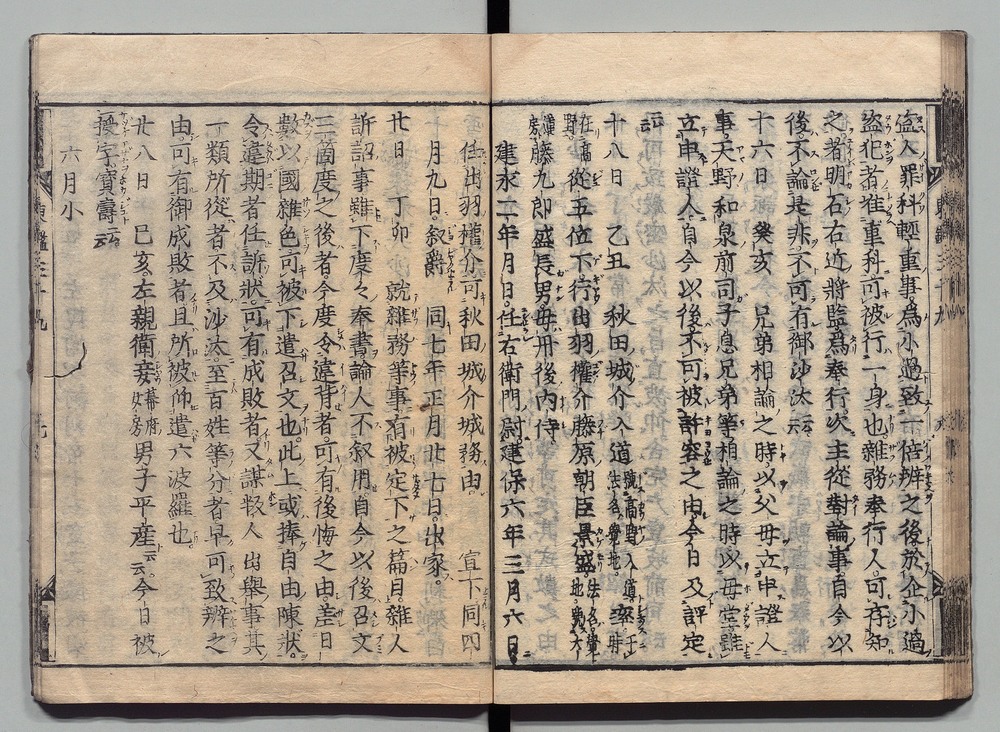 盗人罪科輕重事爲小過致一倍辨之後於企小過
盗犯者准重科可被行一身也雜務奉行人可存知
之者明石右近將監爲奉行次主從對論事自今以
後不論是非不可有御沙汰云云
十六日 癸亥 兄弟相論之時以父母立申證人
事天野和泉前司子息兄弟等相論之時以母堂雖
立申證人自今以後不可被許容之由今日及評定
云云
十八日 乙丑 秋田城介入道 於高野入道 卒
在高野 從五位下行出羽權介藤原朝臣景盛 法名覺地
藤九郎盛長男母丹後内侍
建永二年月日任右衛門尉建保六年三月六日
任出羽權介可秋田城介城務由 宣下同四
月九日叙爵 同七年正月廿七日出家
廿日 丁卯 就雜務等事有被定下之篇目雜人
訴訟事雖下度々奉書論人不叙用自今以後召文
三箇度之後者今度令違背者可有後悔之由差日
數以國雜色可被下遣召文也此上或捧自由陳狀
令違期者任訴狀可有成敗者又謀叛人 出擧事其
一類所從者不及沙汰至百姓等分者早可致辨之
由可有御成敗者且所被仰遣六波羅也
廿八日 己亥左親衛妾 幕府女房 男子平產云云今日被
授字寶壽云云
六月小